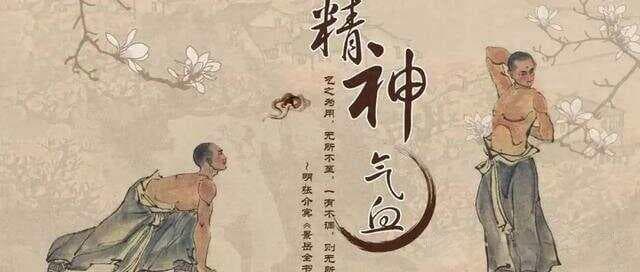 精神气血
气之为用，无所不至，一有不调，则无所
~明 张介宾《景岳全书